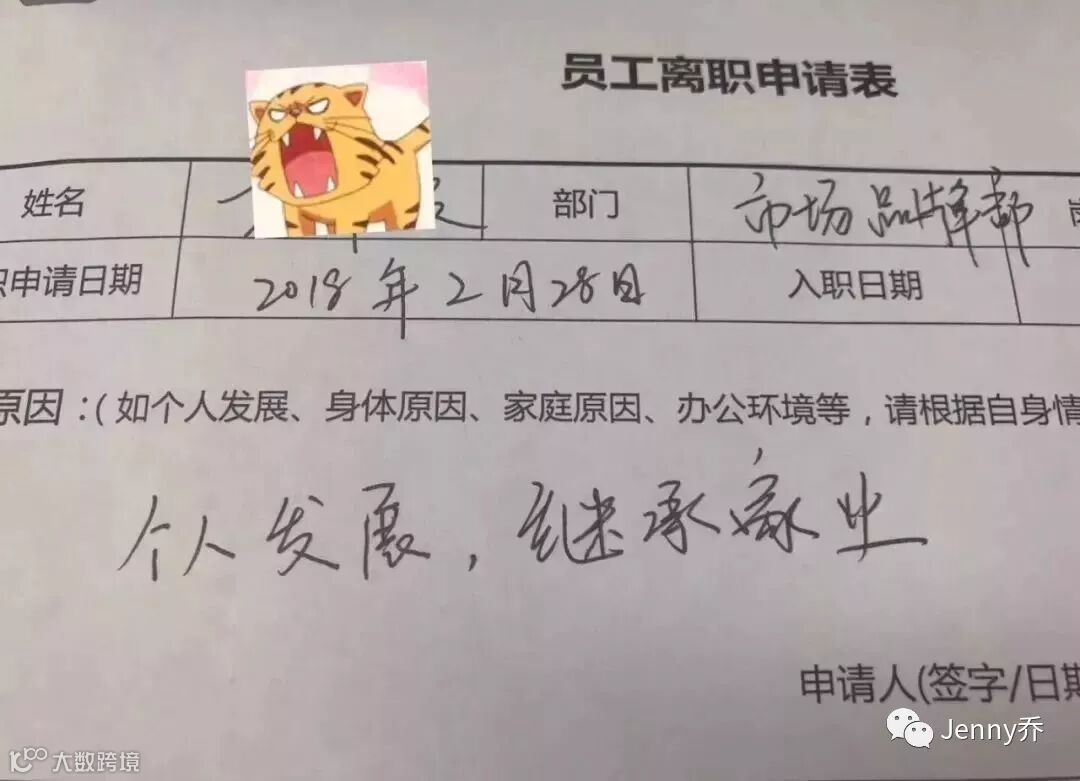 员工离职申请表
姓名 部门 市场品牌部
职申请日期 2018年2月28日 入职日期
原因:(如个人发展、身体原因、家庭原因、办公环境等,请根据自身情
个人发展,继承家业
申请人(签字/日期
Jenny乔
大数跨境